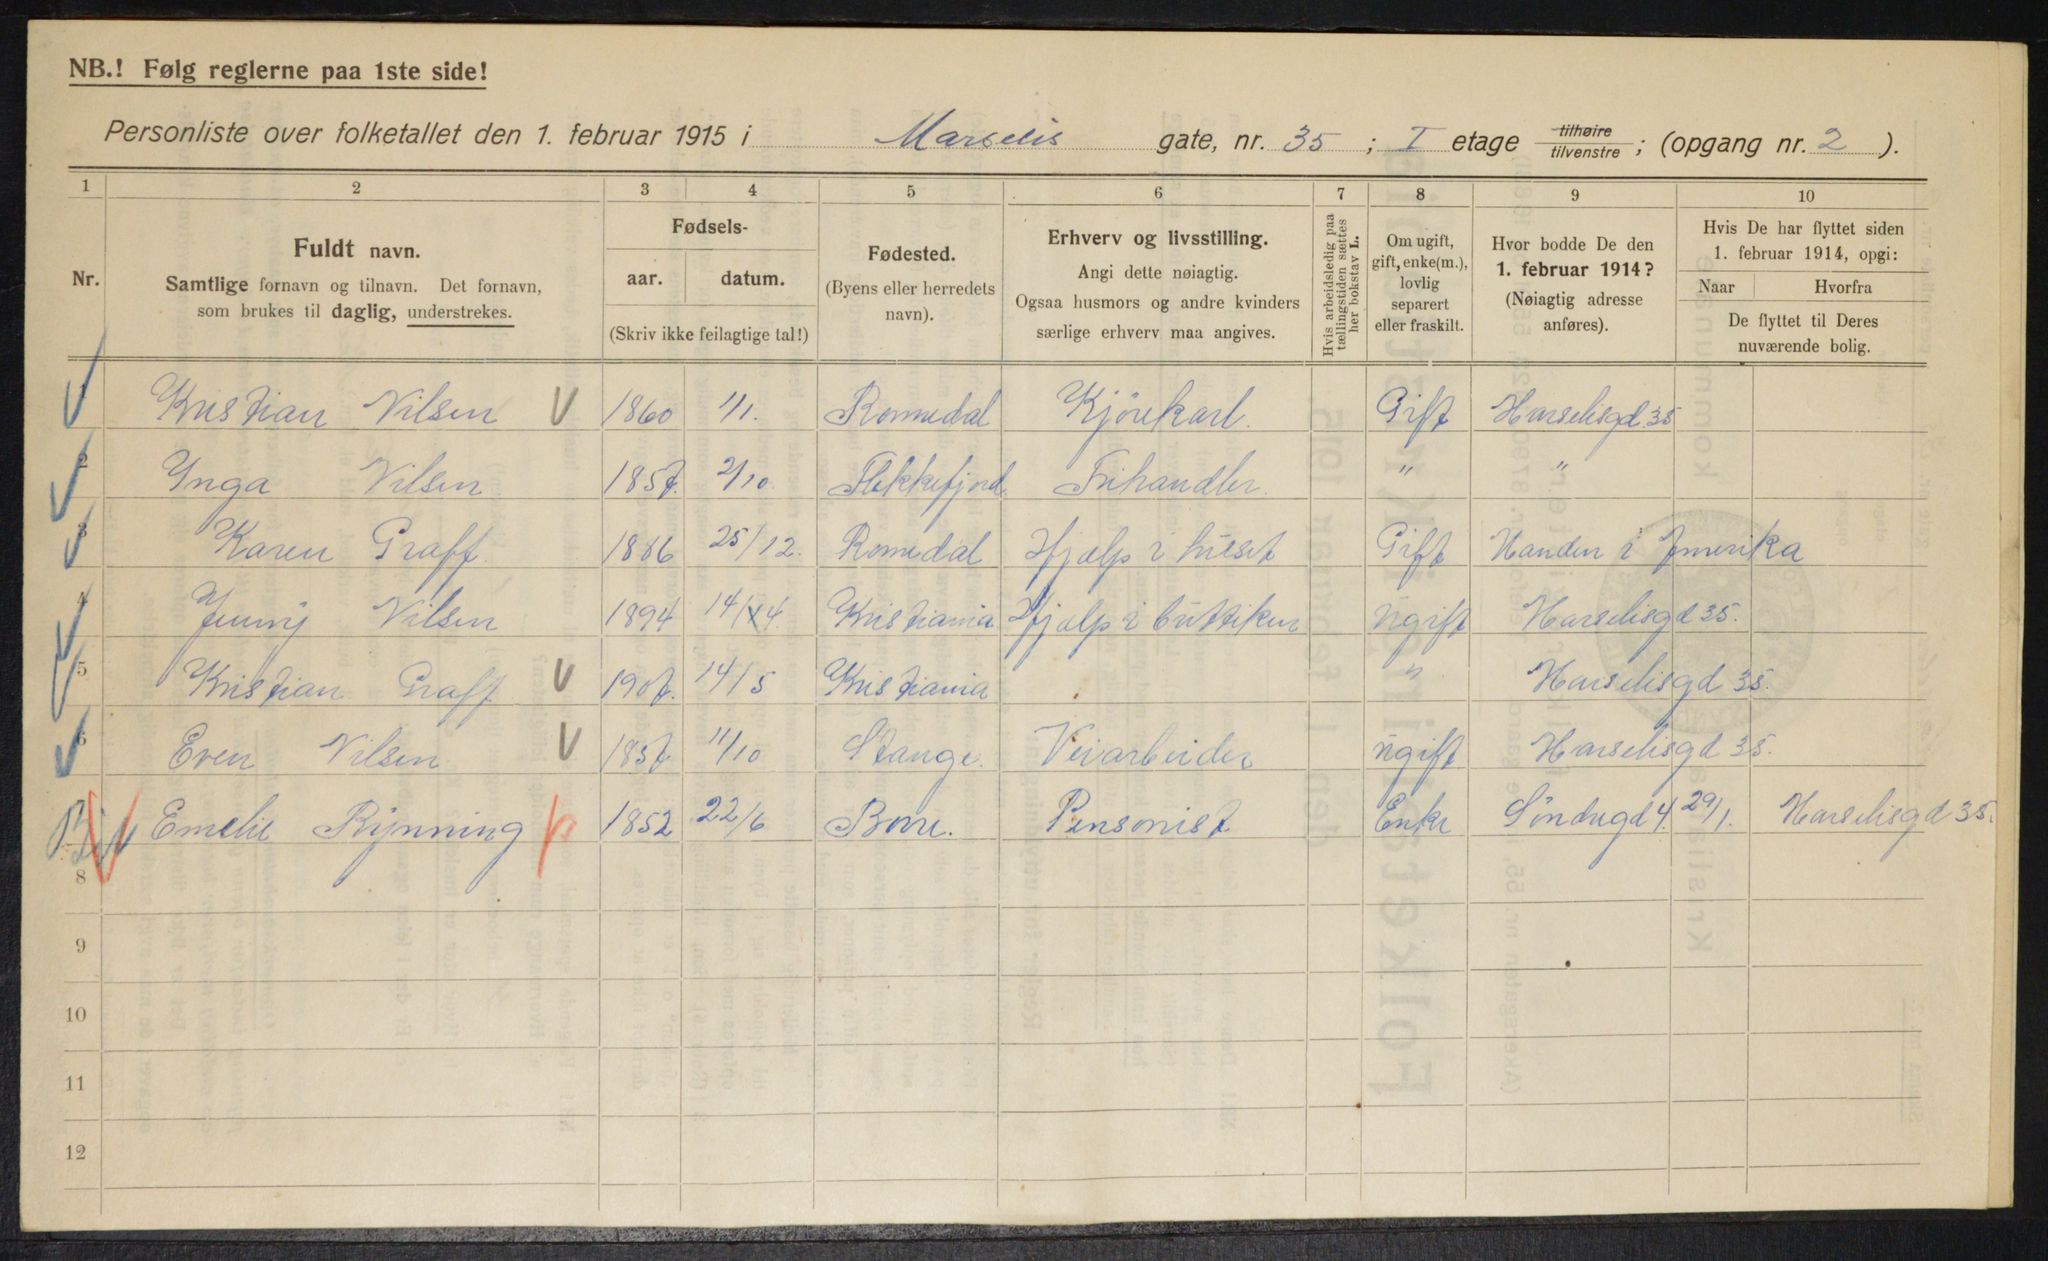 NB.! Følg reglerne paa 1ste side!
Personliste over folketallet den 1. februar 1915 i Marselis gate, nr. 35 ; I etage tilhøire tilvenstre ; (opgang nr. 2 ).
1 2 3 4 5 6 7 8 9 10
Nr.
Fuldt navn.
Samtlige fornavn og tilnavn. Det fornavn,
som brukes til daglig, understrekes.
Fødsels-
aar. datum.
(Skriv ikke feilagtige tal!)
Fødested.
(Byens eller herredets
navn).
Erhverv og livsstilling.
Angi dette nøiagtig.
Ogsaa husmors og andre kvinders
særlige erhverv maa angives.
Hvis arbeidsledig paa
tællingstiden sættes
her bokstav L.
Om ugift,
gift, enke(m.),
lovlig
separert
eller fraskilt.
Hvor bodde De den
1. februar 1914?
(Nøiagtig adresse
anføres).
Hvis De har flyttet siden
1. februar 1914, opgi:
Naar Hvorfra
De flyttet til Deres
nuværende bolig.
1 Kristian Nilsen 1860 1/1. Romedal Kjörekarl. Gift Marselisgd. 35
2 Ynga Nilsen 1857. 2/10. Flekkefjord. Frihandler. " "
3 Karen Graff. 1886 25/12. Romedal Hjælp i huset Gift Manden i Amerika
4 Jenny Nilsen 1894 14/4. Kristiania Hjælp i buttiken Ugift Marselisgd 35.
5 Kristian Graff. 1907. 14/5 Kristiania " Marselisgd 35.
6 Even Nilsen 1857 11/10 Stange. Veiarbeider Ugift Marselisgd 35.
Emelie Rynning 1852 22/6 Borre. Pensonist Enke Söndregd 4. 29/1. Marselisgd 35.
8
9
10
11
12